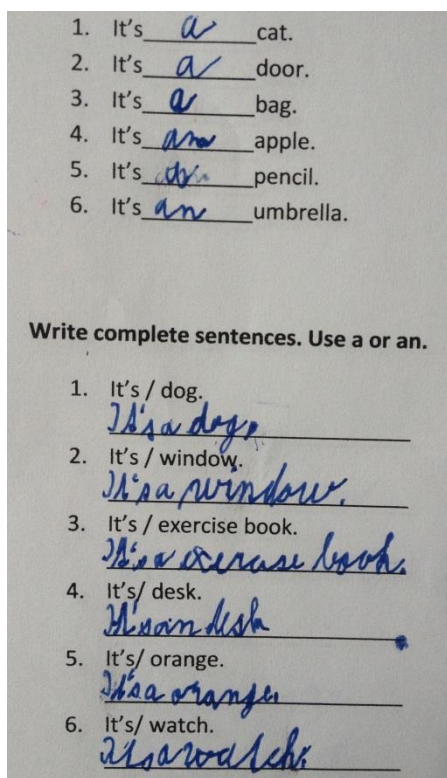 1. It's a cat.
2. It's a door.
3. It's a bag.
4. It's an apple.
5. It's pencil.
6. It's an umbrella.
Write complete sentences. Use a or an.
1. It's / dog.
It's a dog.
2. It's / window.
It's a window.
3. It's / exercise book.
It's a exercase book.
4. It's/ desk.
It's an desk
5. It's/ orange.
It's a orange.
6. It's/ watch.
It's a watch.